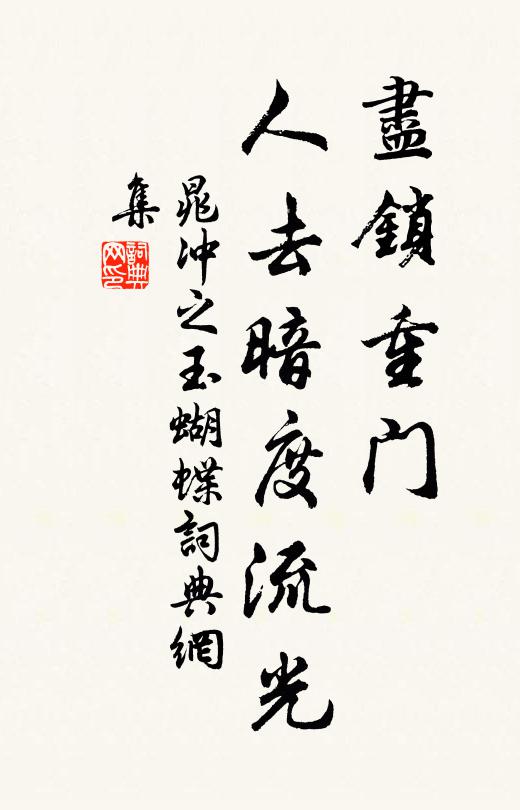 盡鎖重門
人去暗度流光
晁冲之玉蝴蝶詞典網
集
詞典网印